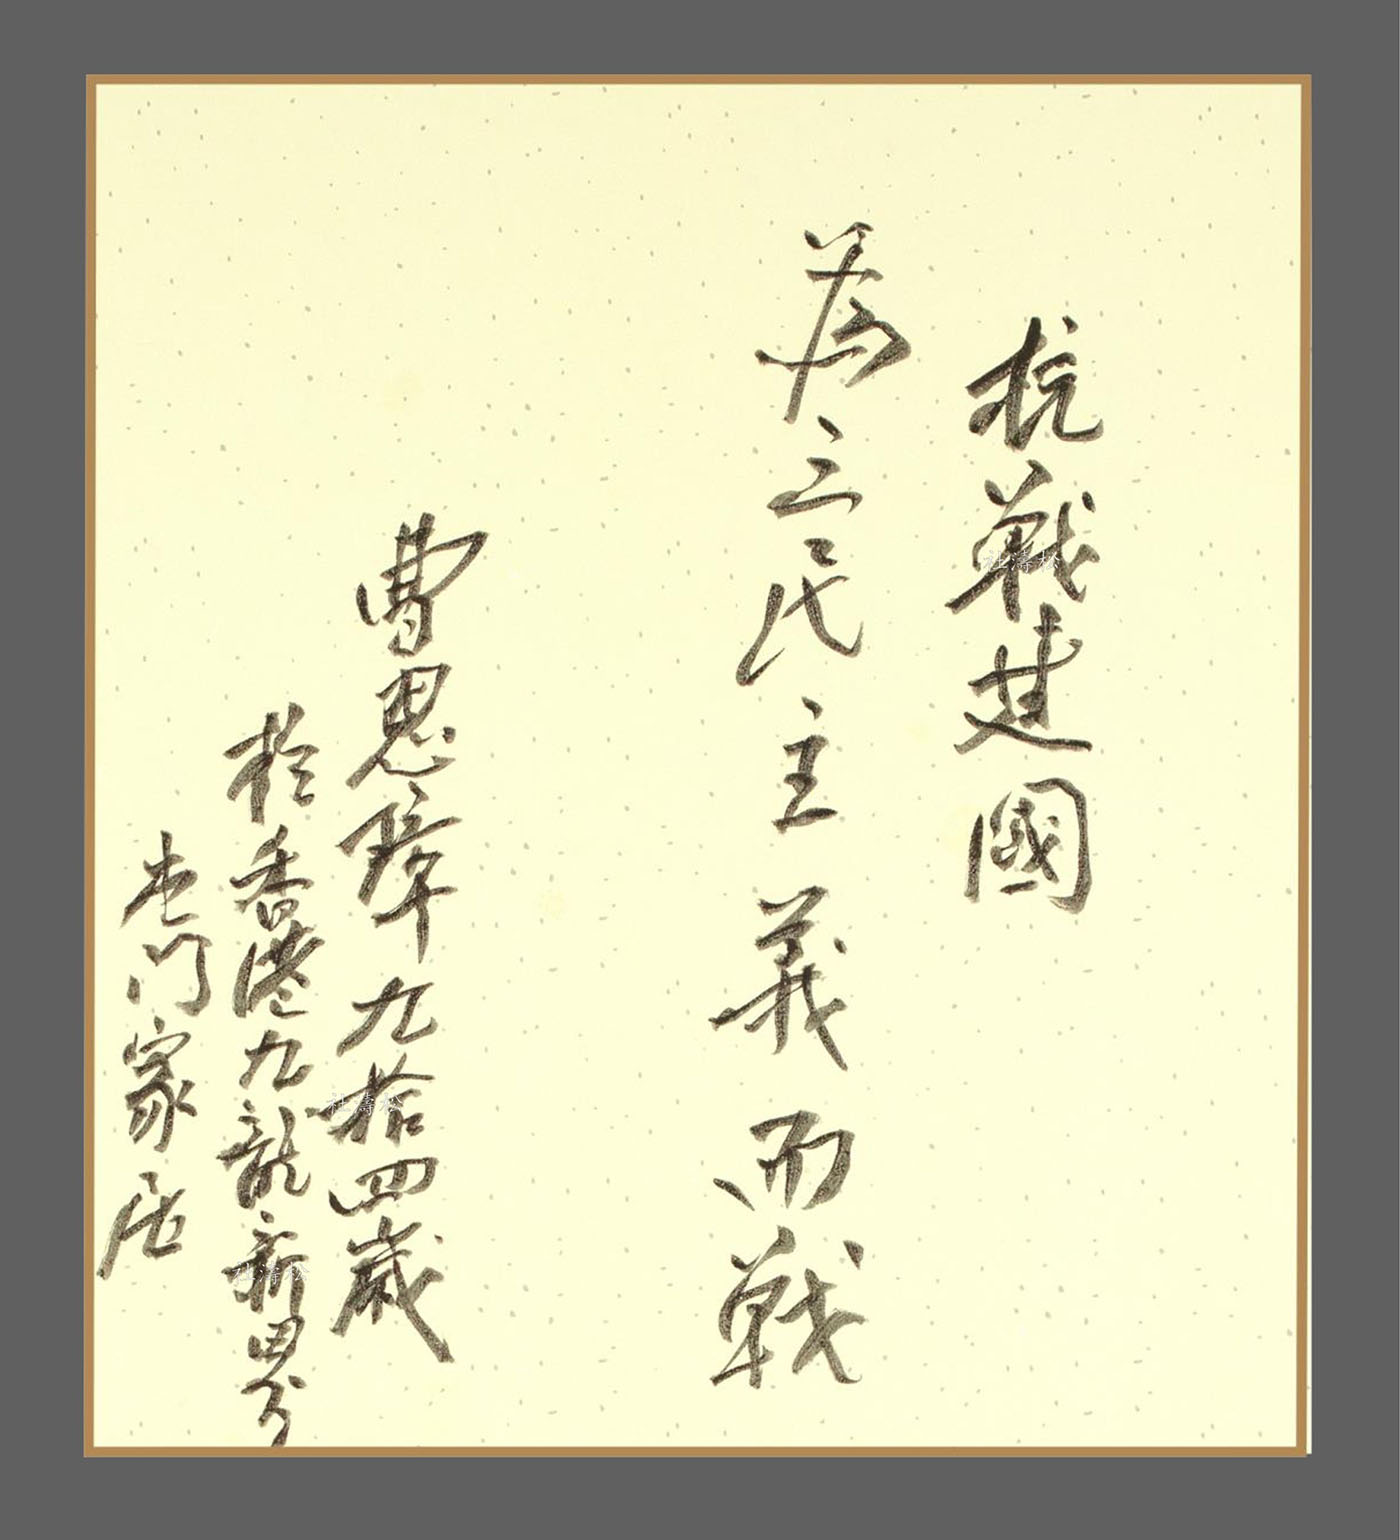 抗戰建國
為三民主義而戰
曹思璋九拾四歲
於香港九龍新界
屯門家居
杜濤松
杜濤松
杜濤松